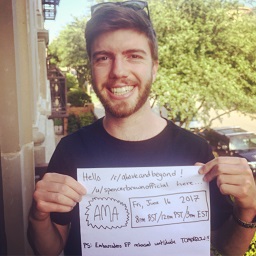 Hello /r/aboveandbeyond !
/u/spencerbrownofficial here
AMA
Fri, June 16 2017
8pm BST/12pm PST/3pm EST
PS: Embarcadero EP release worldwide TOMORROW!